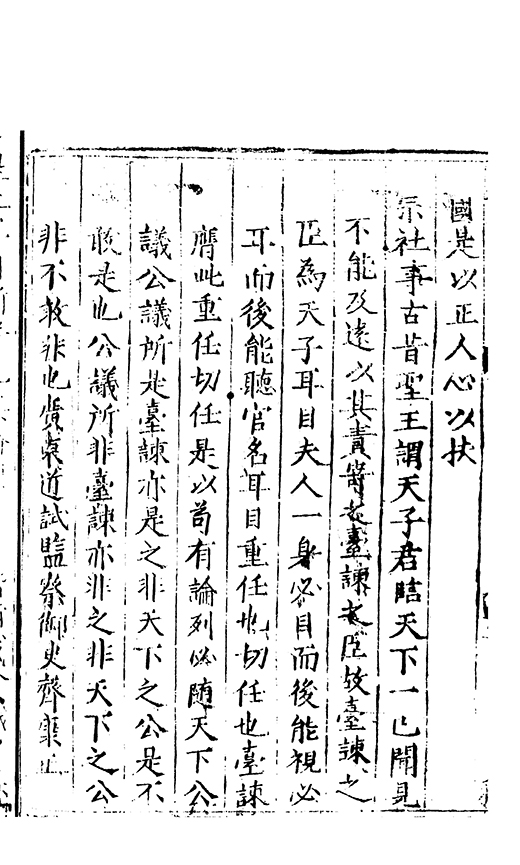 國是以正人心以扶
宗社事古昔聖王謂天子君臨天下一己聞見
不能及遠以其責寄於臺諫之臣故臺諫之
臣為天子耳目夫人一身必目而後能視必
耳而後能聽官名耳目重任也切任也臺諫
膺此重任切任是以苟有論列必随天下公
議公議所是臺諫亦是之非天下之公是不
敢是也公議所非臺諫亦非之非天下之公
非不敢非也 道試監察御史龔